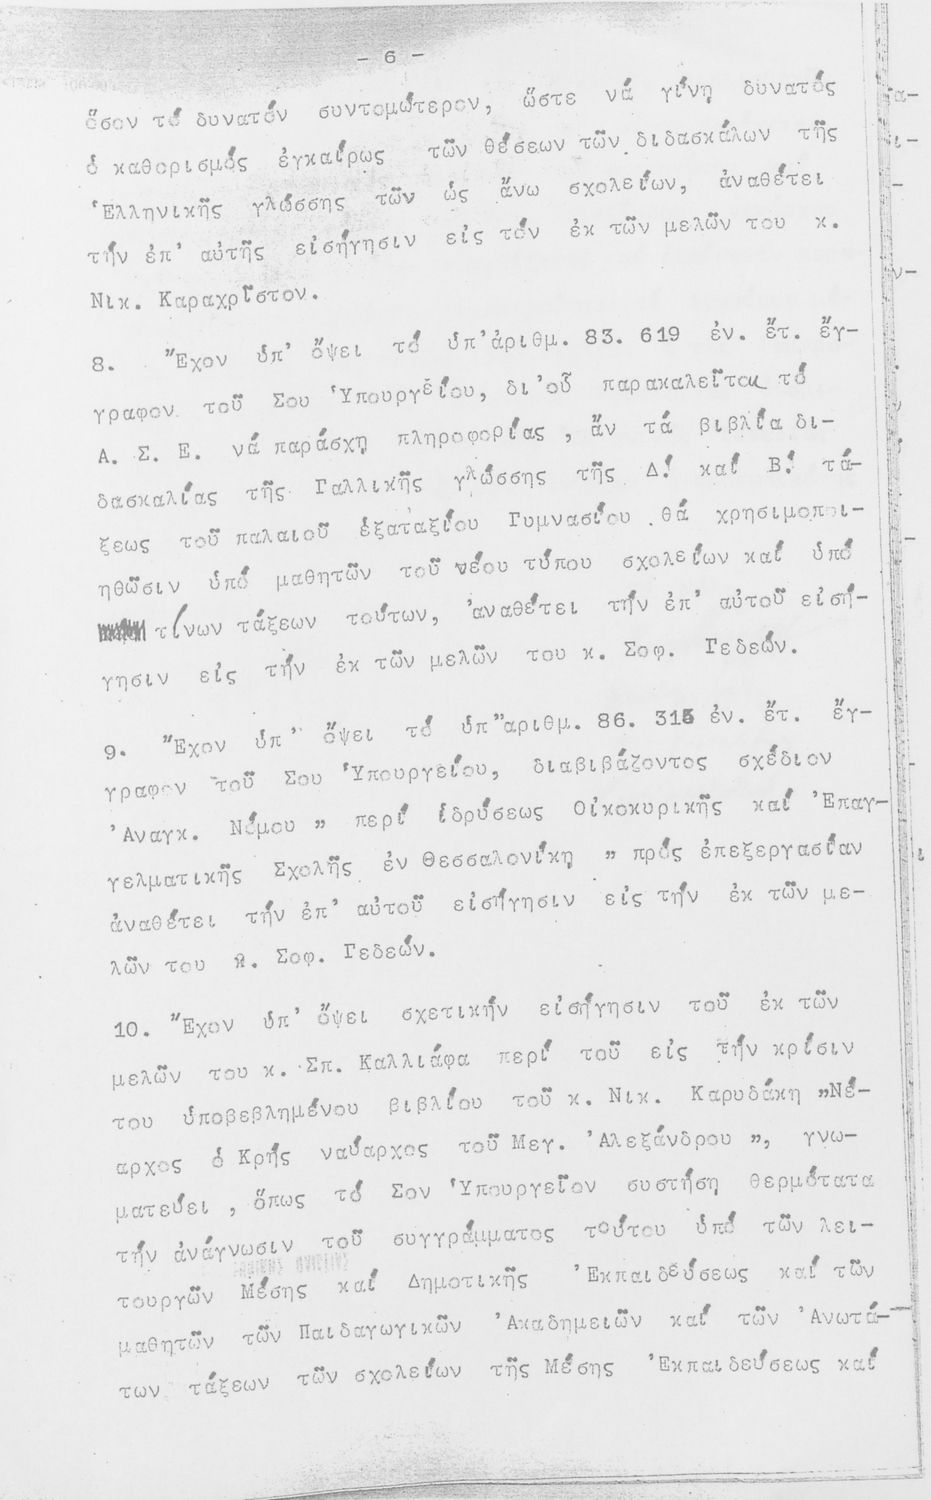 - 6 -
ὅσον τό δυνατόν συντομώτερον, ὥστε νά γίνῃ δυνατός
ὁ καθορισμός ἐγκαίρως τῶν θέσεων τῶν διδασκάλων τῆς
Ἑλληνικῆς γλώσσης τῶν ὡς ἄνω σχολείων, ἀναθέτει
τήν ἐπ' αὐτῆς εἰσήγησιν εἰς τόν ἐκ τῶν μελῶν του κ.
Νικ. Καραχρῖστον.
8. Ἔχον ὑπ' ὄψει τό ὑπ'ἀριθμ. 83. 619 ἐν. ἔτ. ἔγ-
γραφον τοῦ Σου Ὑπουργείου, δι'οὗ παρακαλεῖται τό
Α. Σ. Ε. νά παράσχῃ πληροφορίας , ἄν τά βιβλία δι-
δασκαλίας τῆς Γαλλικῆς γλώσσης τῆς Δ! καί Β! τά-
ξεως τοῦ παλαιοῦ ἑξαταξίου Γυμνασίου θά χρησιμοποι-
ηθῶσιν ὑπό μαθητῶν τοῦ νέου τύπου σχολείων καί ὑπό
τίνων τάξεων τούτων, ἀναθέτει τήν ἐπ' αὐτοῦ εἰσή-
γησιν εἰς τήν ἐκ τῶν μελῶν του κ. Σοφ. Γεδεών.
9. Ἔχον ὑπ' ὄψει τό ὑπ"αριθμ. 86. 315 ἐν. ἔτ. ἔγ-
γραφον τοῦ Σου Ὑπουργείου, διαβιβάζοντος σχέδιον
Ἀναγκ. Νόμου „ περί ἱδρύσεως Οἰκοκυρικῆς καί Ἐπαγ-
γελματικῆς Σχολῆς ἐν Θεσσαλονίκῃ „ πρός ἐπεξεργασίαν
ἀναθέτει τήν ἐπ' αὐτοῦ εἰσήγησιν εἰς τήν ἐκ τῶν με-
λῶν του κ. Σοφ. Γεδεών.
10. Ἔχον ὑπ' ὄψει σχετικήν εἰσήγησιν τοῦ ἐκ τῶν
μελῶν του κ. Σπ. Καλλιάφα περί τοῦ εἰς τήν κρίσιν
του ὑποβεβλημένου βιβλίου τοῦ κ. Νικ. Καρυδάκη „Νέ-
αρχος ὁ Κρής ναύαρχος τοῦ Μεγ. Ἀλεξάνδρου „, γνω-
ματεύει , ὅπως τό Σον Ὑπουργεῖον συστήσῃ θερμότατα
τήν ἀνάγνωσιν τοῦ συγγράμματος τούτου ὑπό τῶν λει-
τουργῶν Μέσης καί Δημοτικῆς Ἐκπαιδεύσεως καί τῶν
μαθητῶν τῶν Παιδαγωγικῶν Ἀκαδημειῶν καί τῶν Ἀνωτά-
των τάξεων τῶν σχολείων τῆς Μέσης Ἐκπαιδεύσεως καί